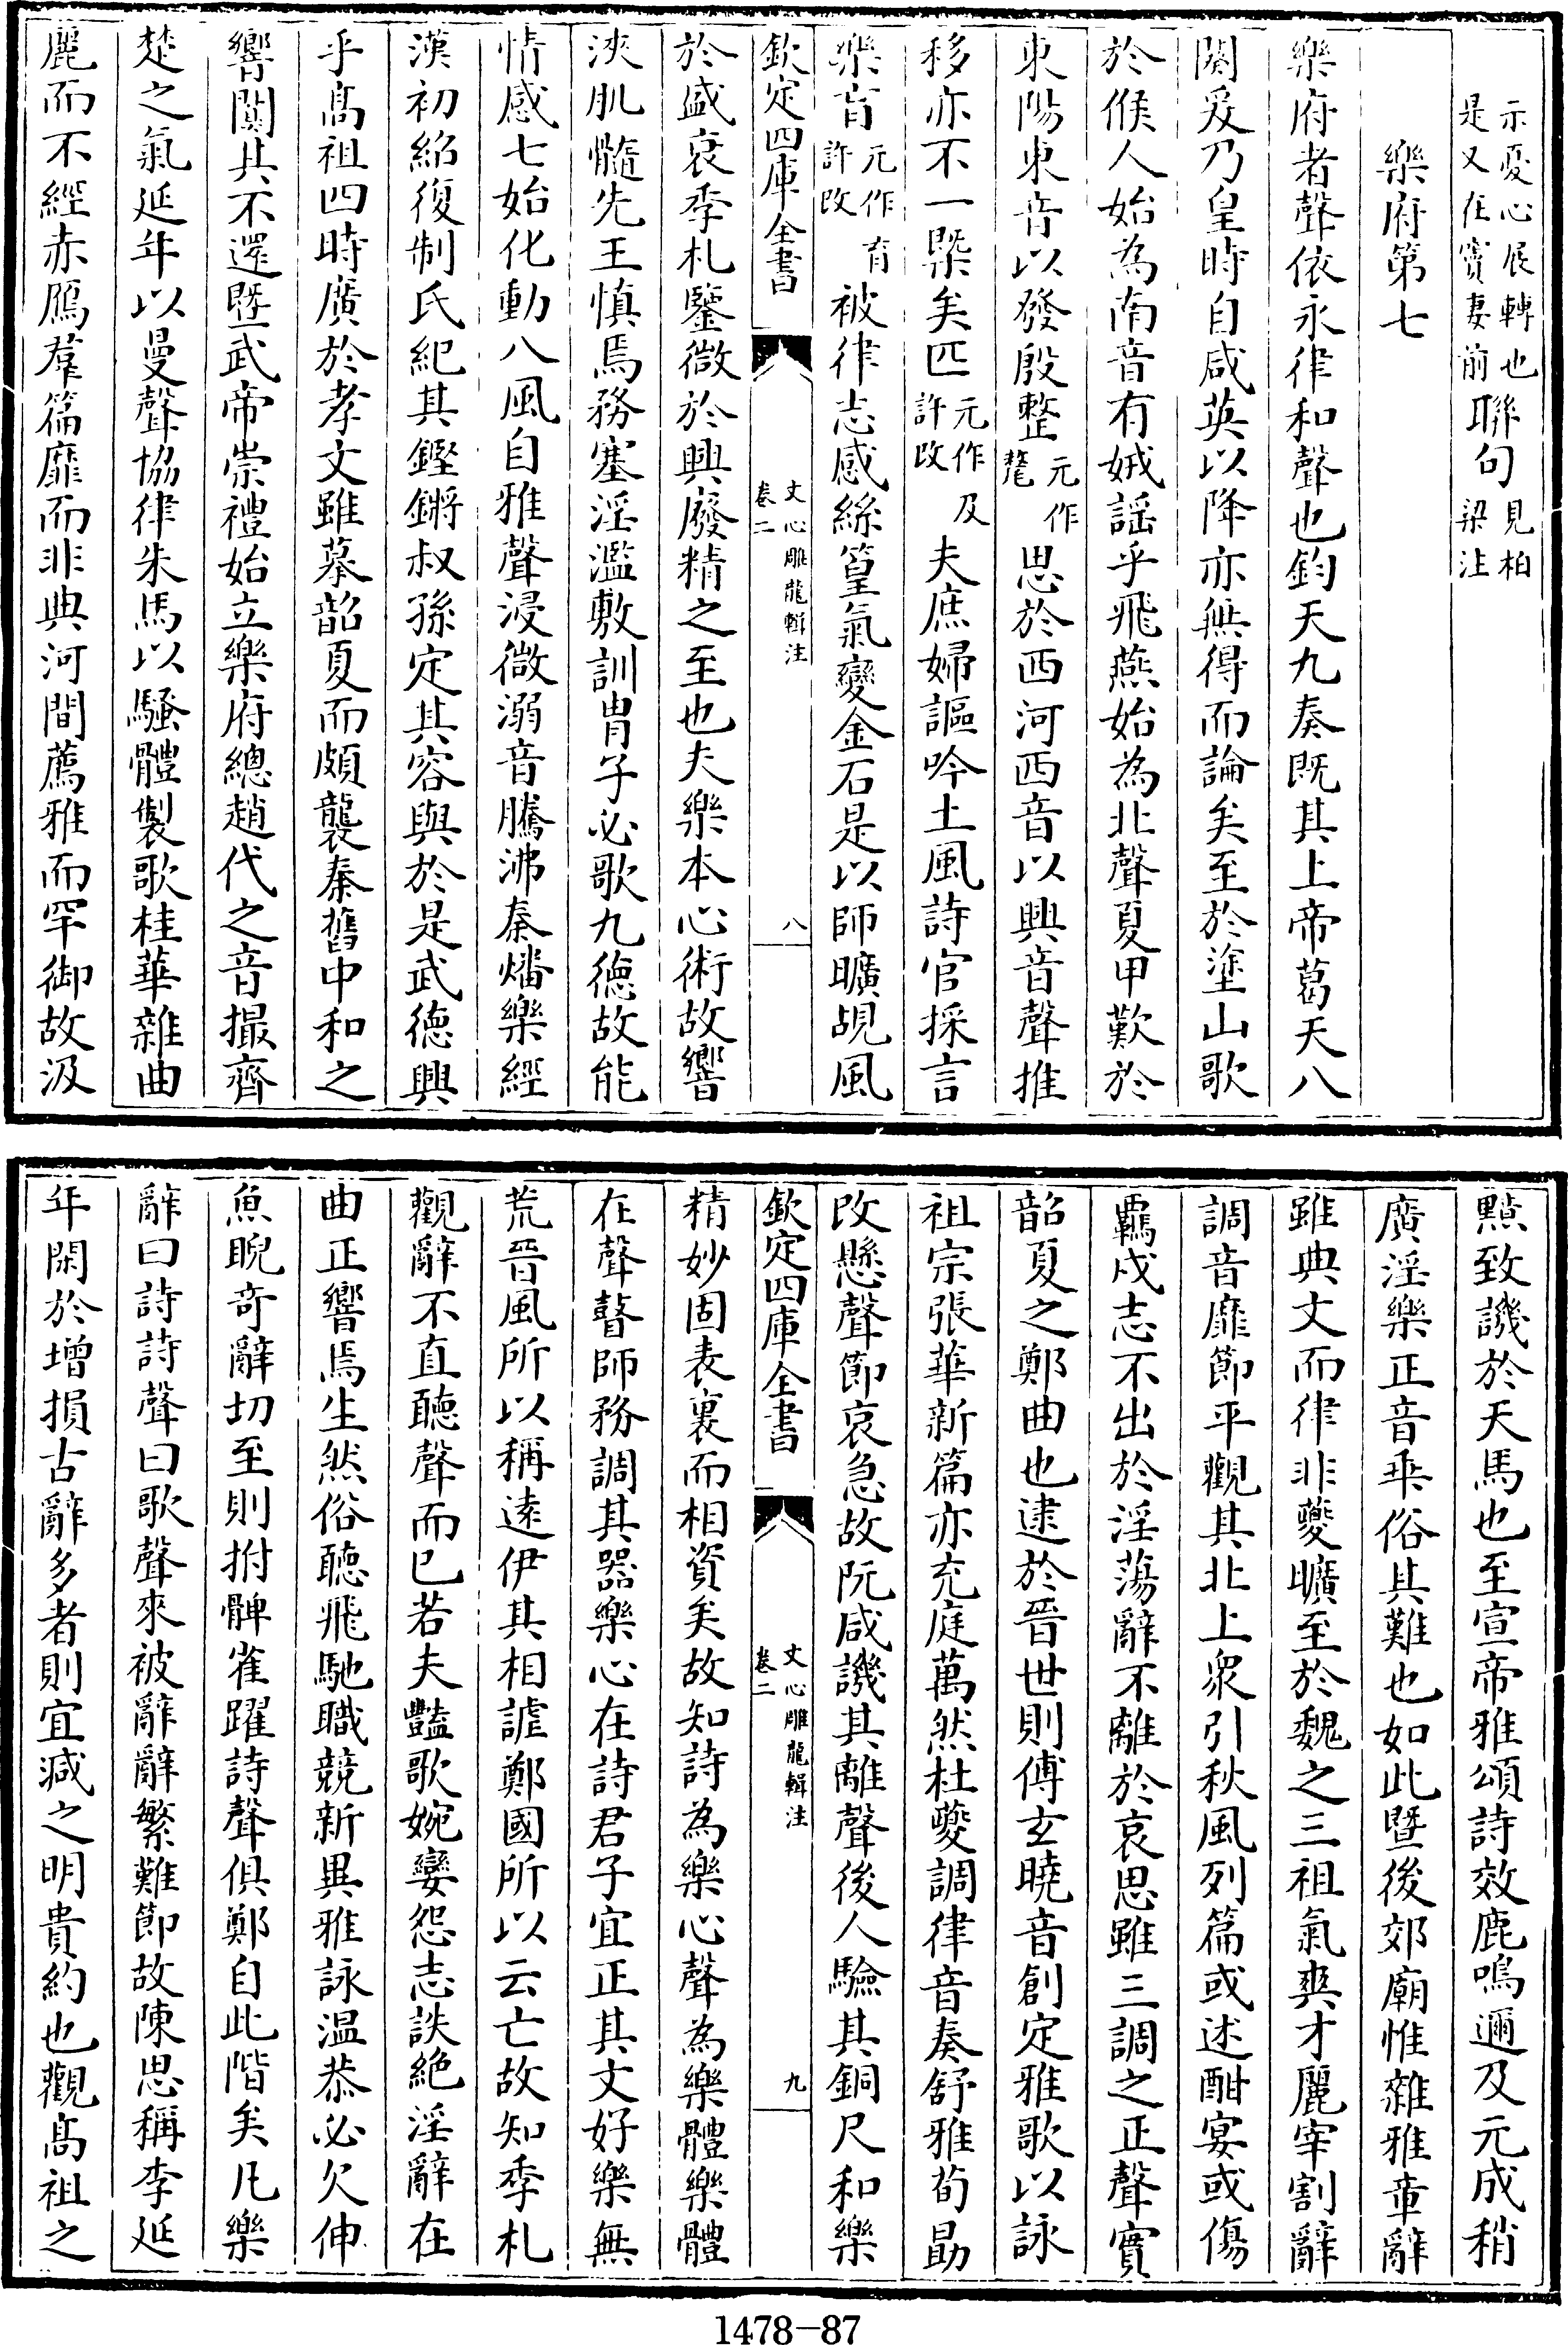 示憂心展轉也聯句見柏
是又在竇妻前梁注
樂府第七
樂府者聲依永律和聲也鈞天九奏既其上帝葛天八
闋爰乃皇時自咸英以降亦無得而論矣至於塗山歌
於候人始為南音有娀謡乎飛燕始為北聲夏甲歎於
東陽東音以發殷整元作氂思於西河西音以興音聲推
移亦不一槩矣匹元作及許改夫庶婦謳吟土風詩官採言
樂盲元作育許改被律志感絲篁氣變金石是以師曠覘風
欽定四庫全書
文心雕龍輯注
卷二
八
於盛衰季札鑒微於興廢精之至也夫樂本心術故響
浹肌髓先王慎焉務塞淫濫敷訓胄子必歌九德故能
情感七始化動八風自雅聲浸微溺音騰沸秦燔樂經
漢初紹復制氏紀其鏗鏘叔孫定其容與於是武德興
乎髙祖四時廣於孝文雖摹韶夏而頗襲秦舊中和之
響闃其不還暨武帝崇禮始立樂府總趙代之音撮齊
楚之氣延年以曼聲協律朱馬以騷體製歌桂華雜曲
麗而不經赤鴈羣篇靡而非典河間薦雅而罕御故汲
黯致譏於天馬也至宣帝雅頌詩效鹿鳴邇及元成稍
廣淫樂正音乖俗其難也如此暨後郊廟惟雜雅章辭
雖典文而律非夔曠至於魏之三祖氣爽才麗宰割辭
調音靡節平觀其北上衆引秋風列篇或述酣宴或傷
羈戍志不出於淫蕩辭不離於哀思雖三調之正聲實
韶夏之鄭曲也逮於晉世則傅玄曉音創定雅歌以詠
祖宗張華新篇亦充庭萬然杜夔調律音奏舒雅荀勗
改懸聲節哀急故阮咸譏其離聲後人驗其銅尺和樂
欽定四庫全書
文心雕龍輯注
卷二
九
精妙固表裏而相資矣故知詩為樂心聲為樂體樂體
在聲瞽師務調其器樂心在詩君子宜正其文好樂無
荒晉風所以稱遠伊其相謔鄭國所以云亡故知季札
觀辭不直聽聲而已若夫豔歌婉孌怨志詄絶淫辭在
曲正響焉生然俗聽飛馳職競新異雅詠温恭必欠伸
魚睨奇辭切至則拊髀雀躍詩聲俱鄭自此階矣凡樂
辭曰詩詩聲曰歌聲來被辭辭繁難節故陳思稱李延
年閑於增損古辭多者則宜減之明貴約也觀髙祖之
1478-87